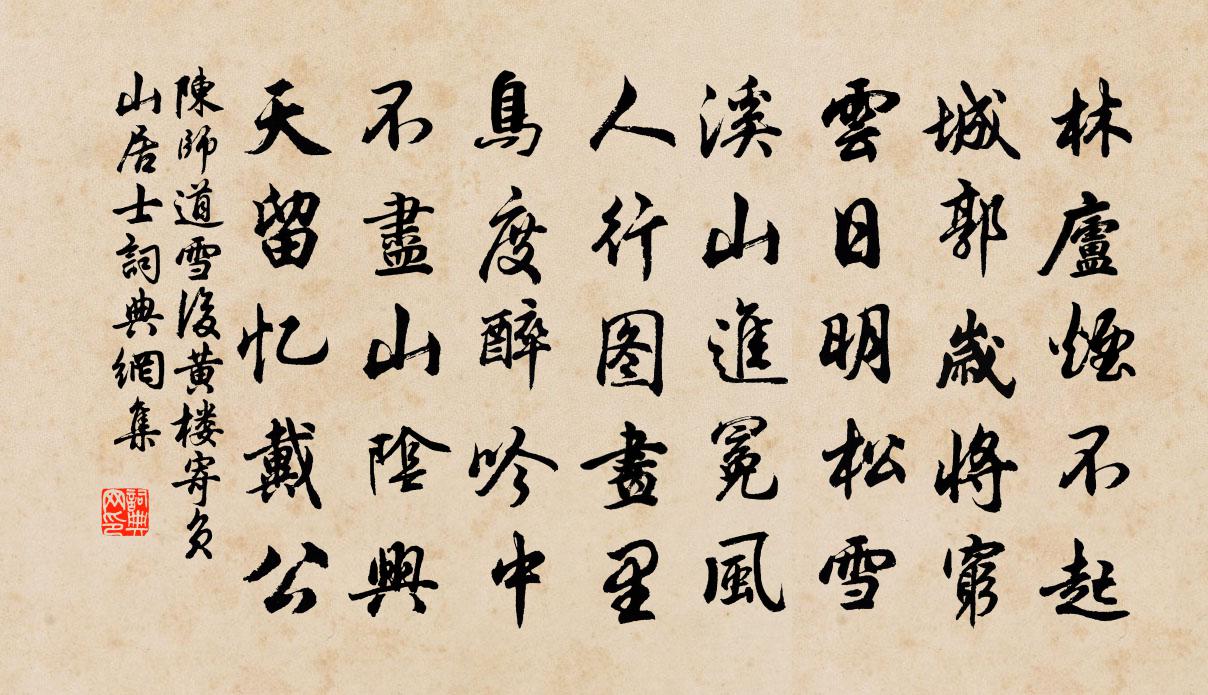 林廬煙不起
城郭歲將窮
雲日明松雪
溪山進冕風
人行图畫里
鳥度醉吟中
不盡山陰興
天留忆戴公
陳師道雪後黄楼寄负
山居士詞典網集
詞典
网印